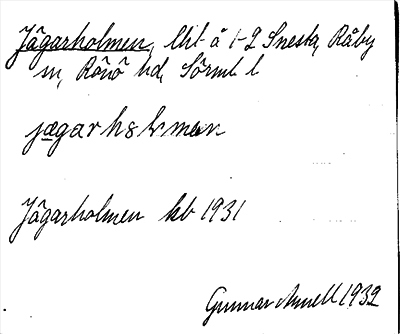 Jägarholmen, lht å 1-2 Snesta, Råby
sn, Rönö hd, Sörml l
jægarhɷlmən
Jägarholmen kb 1931
Gunnar Annell 1932